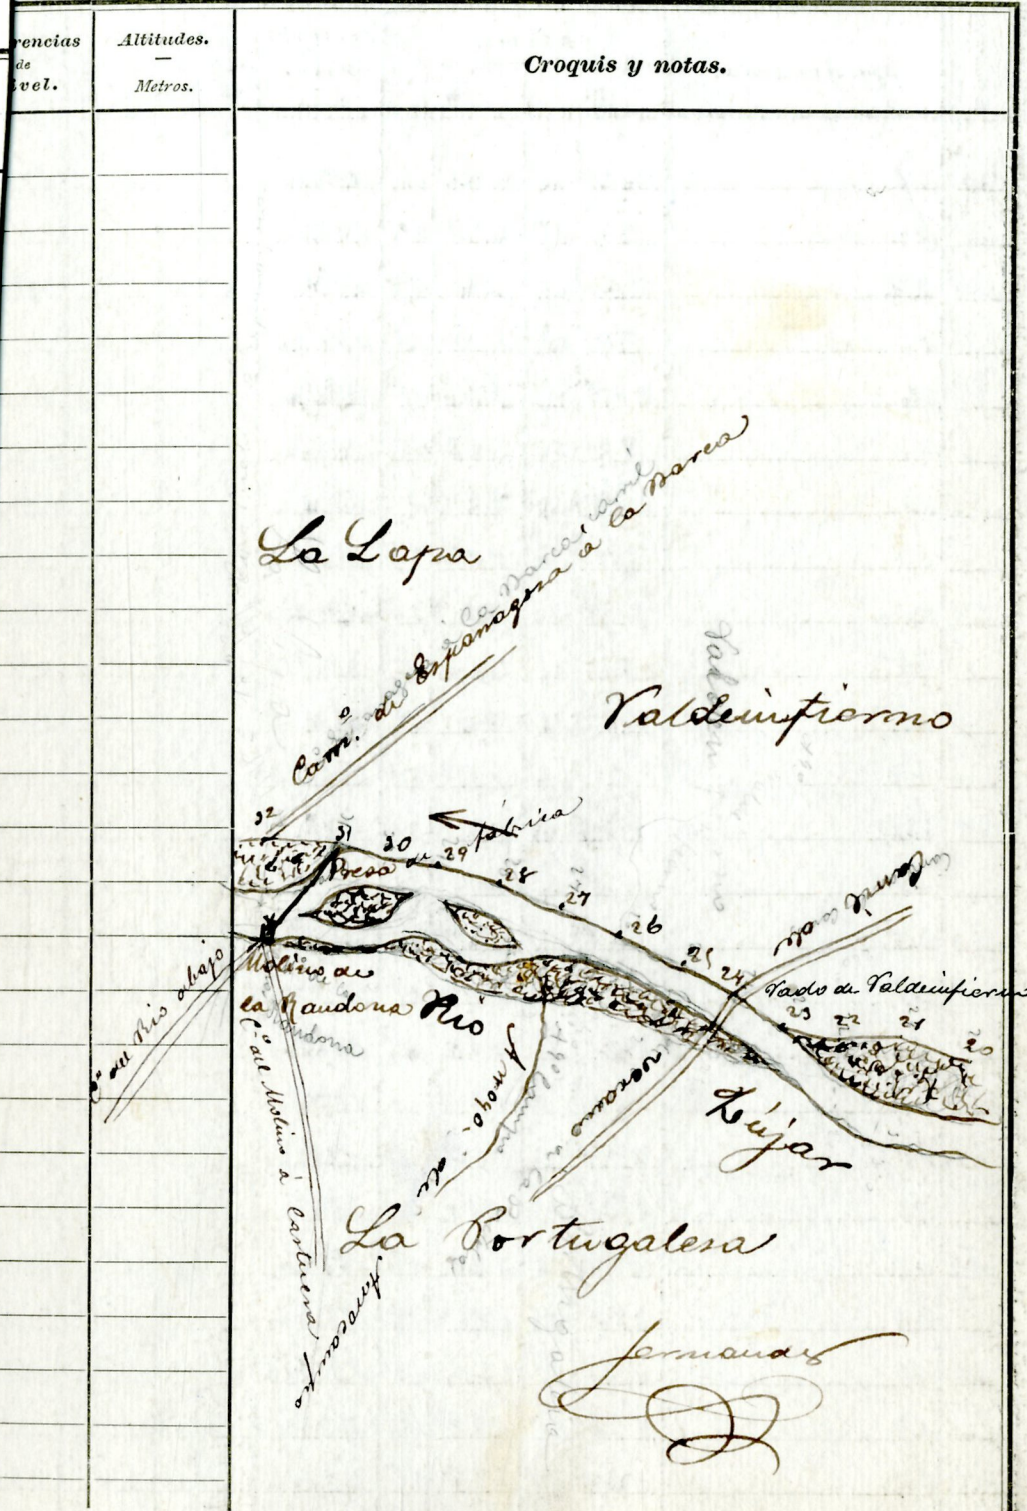 rencias
de
ivel.
Altitudes.
Metros.
Croquis y notas.
La Lapa
Cam.º de Esparragosa á la Barca
Valdeinfierno
32
31
30
29
28
27
26
25
24
23
22
21
20
Presa de fábrica
Molino de
la Raudona
Río
Zújar
Vado de Valdeinfierno
Cº del Rio abajo
Cº del Molino á Castuera
Arroyo de
Tarocampo
verano
La Portugalesa
Fernandez